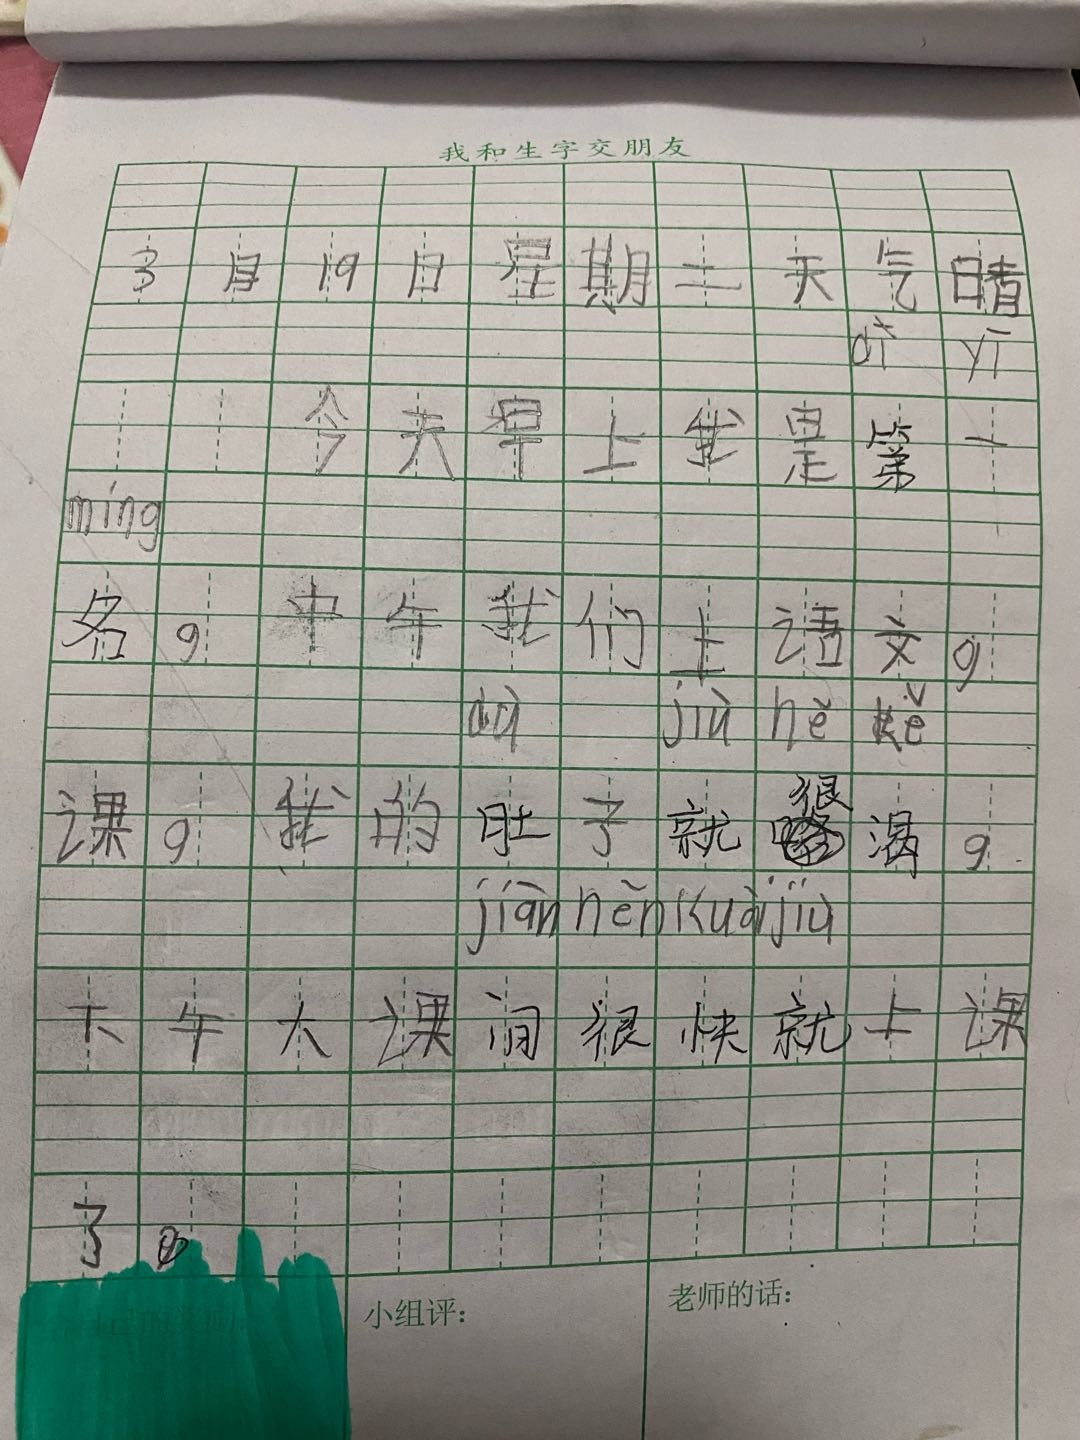 我和生字交朋友
3月19日星期二天气晴
dì yī
今天早上我是第一
míng
名,中午我们上语文,
dù jiù hě kě
课,我的肚子就很渴,
jiàn hěn kuài jiù
下午大课间很快就上课
了。
小组评:
老师的话: